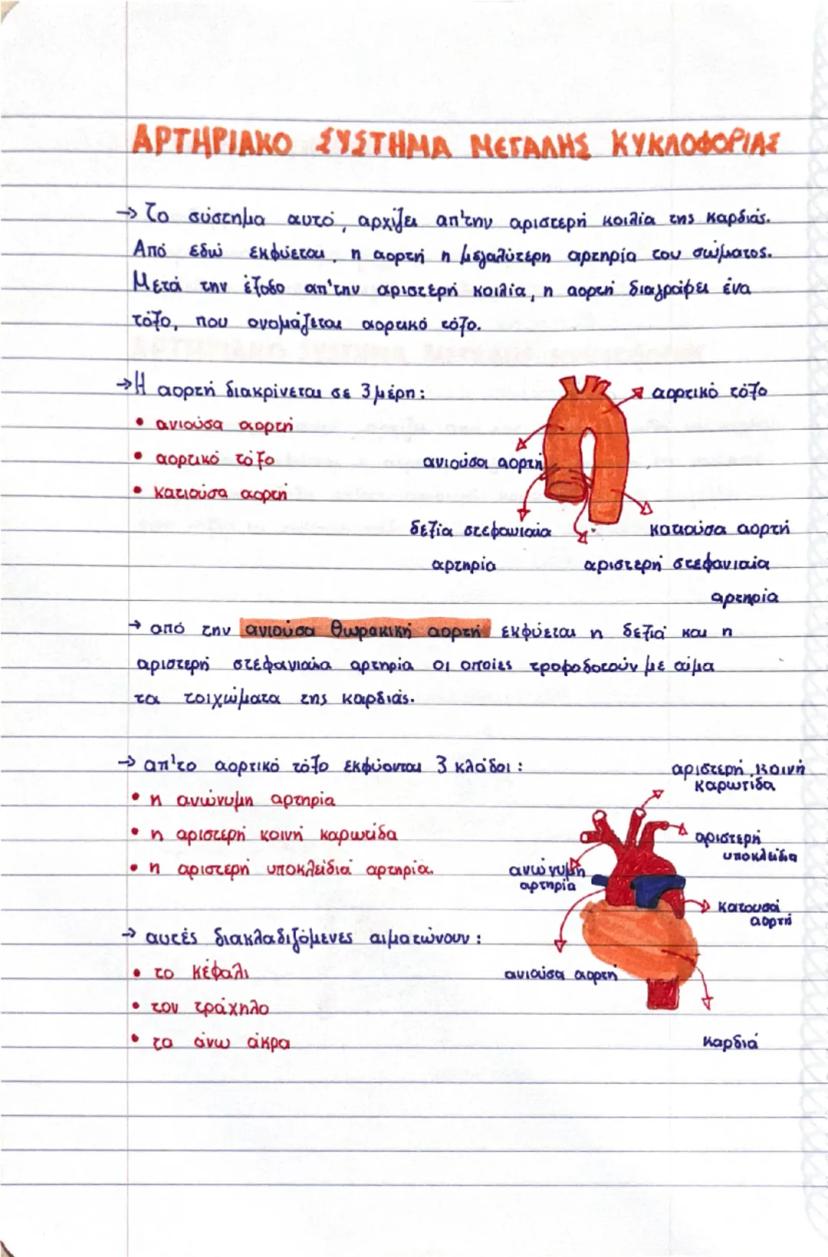 ΑΡΤΗΡΙΑΚΟ ΣΥΣΤΗΜΑ ΜΕΓΑΛΗΣ ΚΥΚΛΟΦΟΡΙΑΣ
→ Το σύστημα αυτό, αρχίζει απ'την αριστερή κοιλία της καρδιάς.
Από εδώ εκφύεται, η αορτή η μεγαλύτερη αρτηρία του σώματος.
Μετά την έξοδο απ'την αριστερή κοιλία, η αορτή διαγράφει ένα
τόξο, που ονομάζεται αορτικό τόξο.
→ Η αορτή διακρίνεται σε 3 μέρη:
• ανιούσα αορτή
• αορτικό τόξο
• κατιούσα αορτή
αορτικό τόξο
ανιούσα αορτή
δεξία στεφανιαία
αρτηρία
κατιούσα αορτή
αριστερή στεφανιαία
αρτηρία
→ από την ανιούσα θωρακική αορτή εκφύεται η δεξιά και η
αριστερή στεφανιαία αρτηρία οι οποίες τροφοδοτούν με αίμα
τα τοιχώματα της καρδιάς.
→ απ'το αορτικό τόξο εκφύονται 3 κλάδοι:
• η ανώνυμη αρτηρία
• η αριστερή κοινή καρωτίδα
• η αριστερή υποκλείδιά αρτηρία.
αριστερή κοινή
καρωτίδα
αριστερή
υποκλείδια
ανώνυμη
αρτηρία
κατουσά
αορτή
ανιούσα αορτή
καρδιά
→ αυτές διακλαδιζόμενες αιματώνουν:
• το κέφαλι
• τον τράχηλο
• τα άνω άκρα